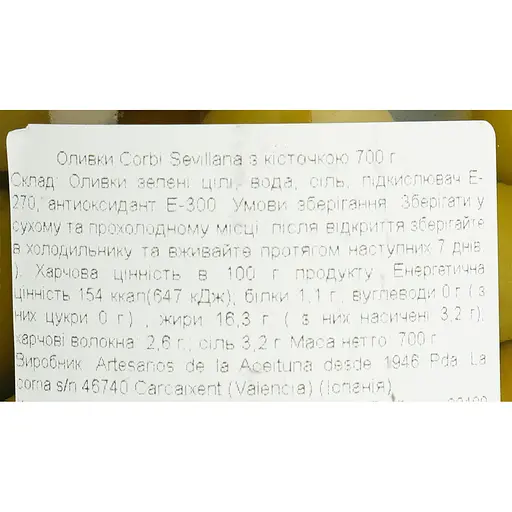 Оливки Corbi Sevillana з кісточкою 700 г
Склад: Оливки зелені цілі, вода, сіль, підкислювач Е-
270, антиоксидант Е-300 Умови зберігання Зберігати у
сухому та прохолодному місці після відкриття зберігайте
в холодильнику та вживайте протягом наступних 7 днів
). Харчова цінність в 100 г продукту Енергетична
цінність 154 ккал(647 кДж), білки 1,1 г, вуглеводи 0 г ( з
них цукри 0 г) , жири 16,3 г ( з них насичені 3,2 г),
харчові волокна 2,6 г, сіль 3,2 г Маса нетто 700 г
Виробник Artesanos de la Aceituna desde 1946 Pda La
coma s/n 46740 Carcaixent (Valencia) (Іспанія)